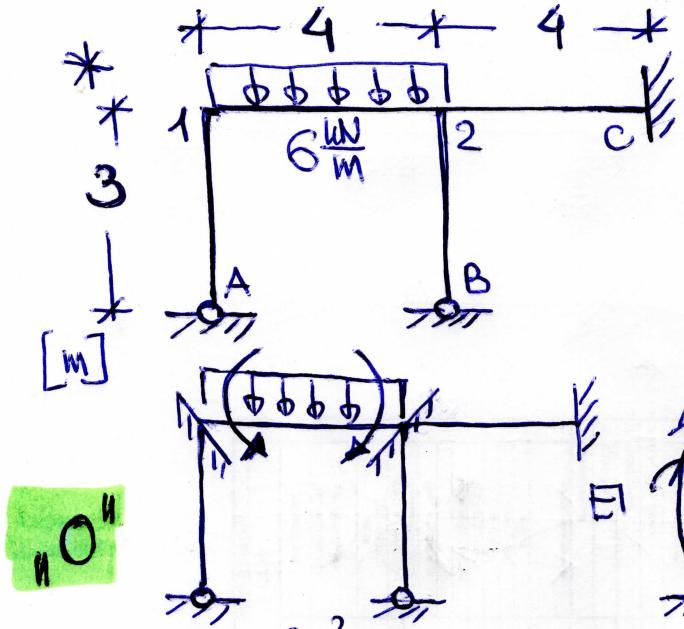 4 4
*
1 6 kN/m 2 C
3
A B
[m]
EI
"0"